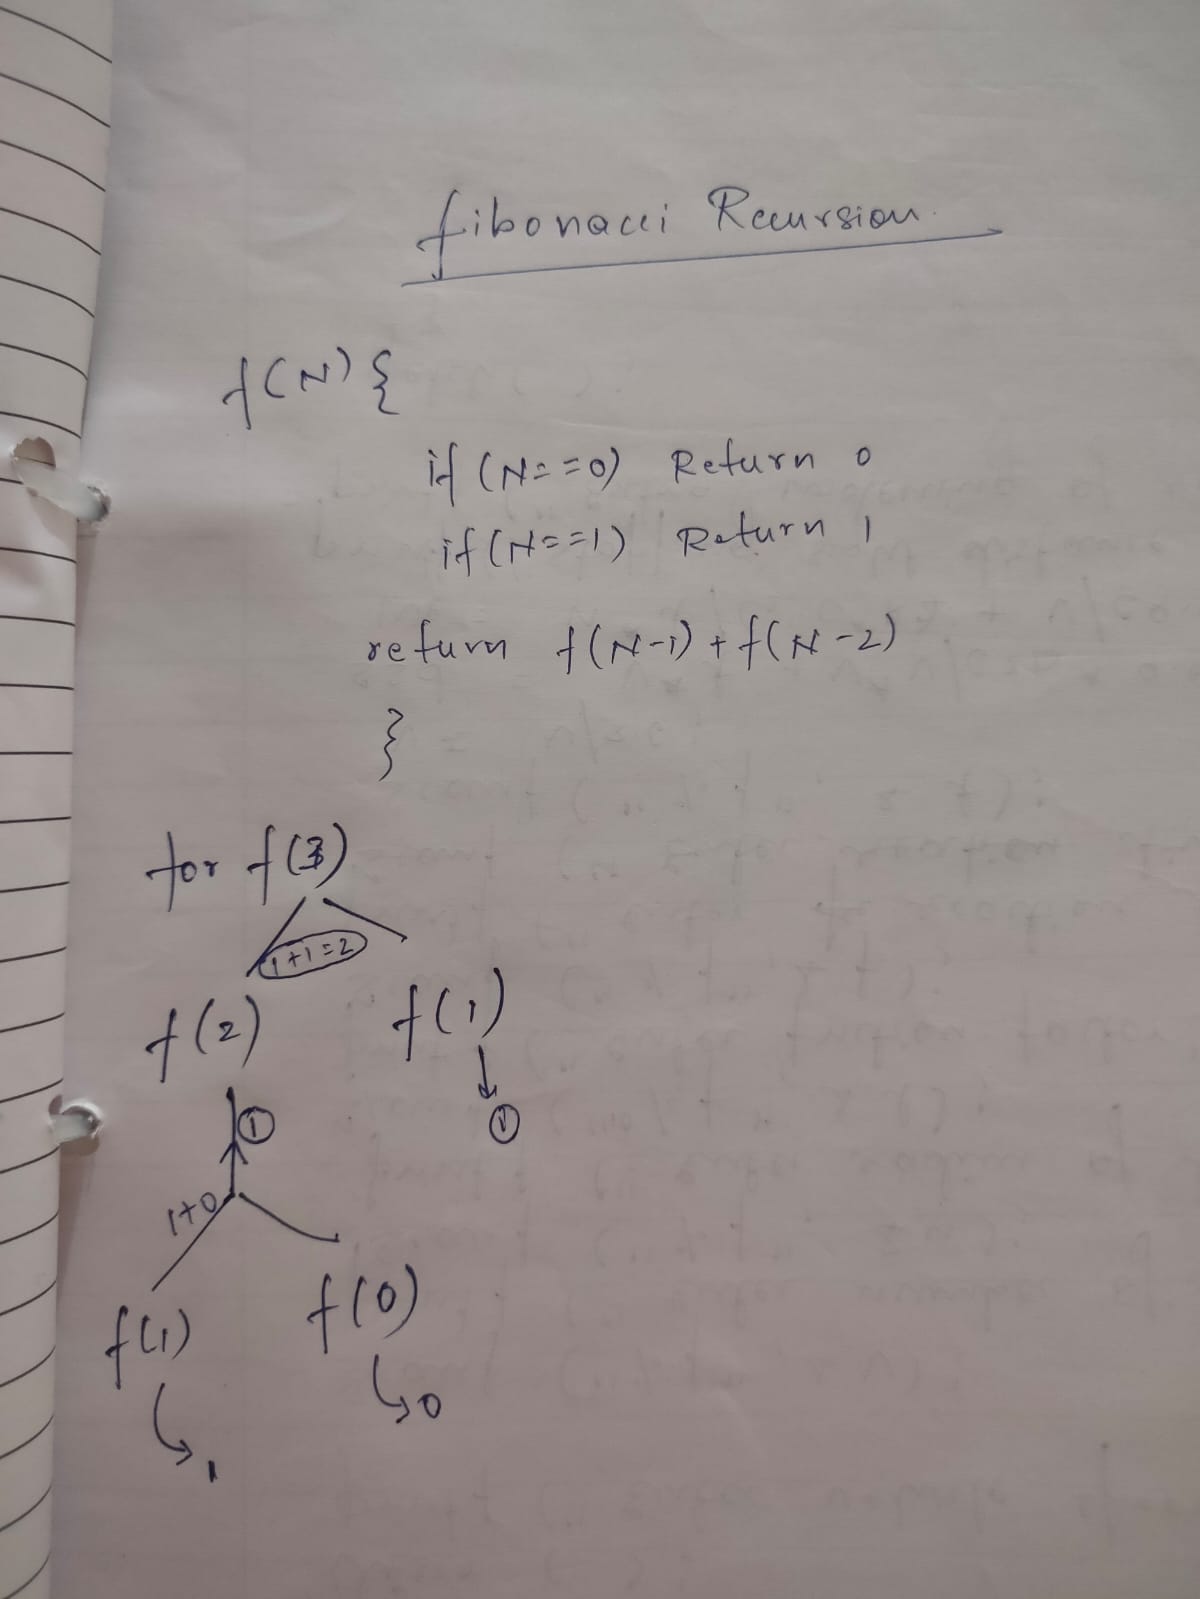 fibonacci Recursion.
f(N) {
if (N==0) Return 0
if (N==1) Return 1
return f(N-1) + f(N-2)
}
for f(3)
1+1=2
f(2) f(1)
1 1
1+0
f(1) f(0)
0
1